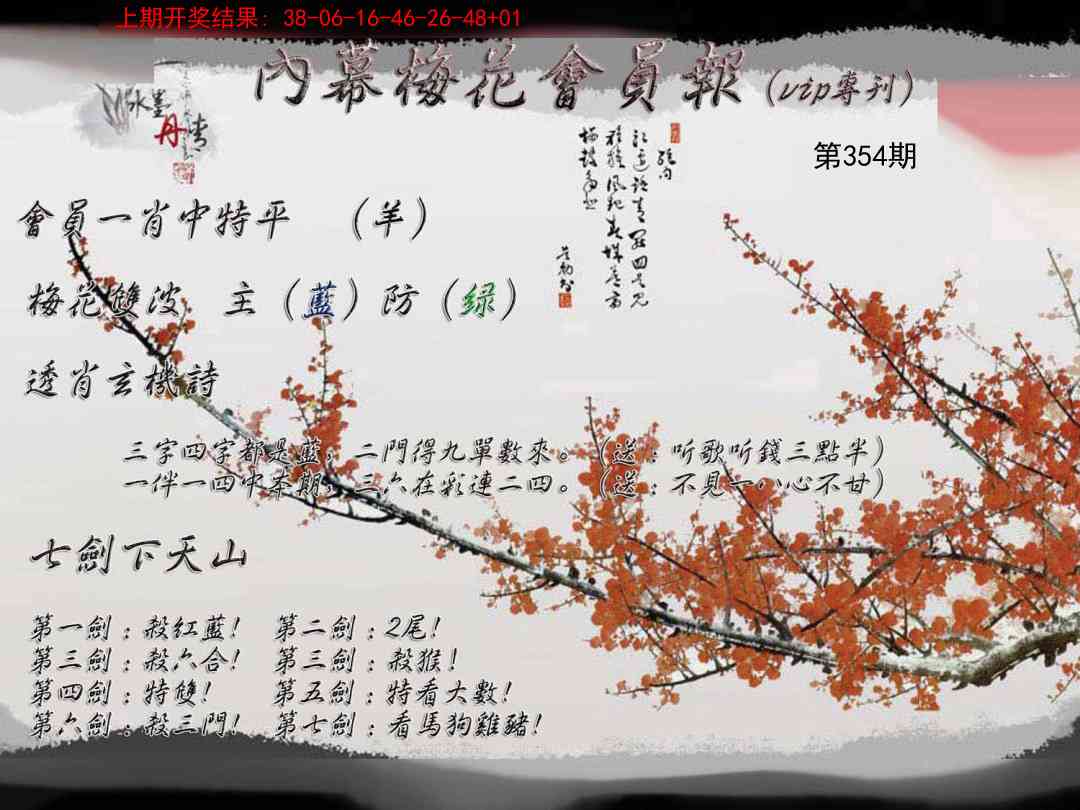 上期开奖结果: 38-06-16-46-26-48+01
內幕梅花會員報(vip專刊)
水墨
丹青
第354期
會員一肖中特平 （羊）
梅花雙波 主（藍）防（绿）
透肖玄機詩
三字四字都是藍，二門得九單數來。（送：听歌听錢三點半）
一伴一四中本期，三六在彩連二四。（送：不見一八心不甘）
七劍下天山
第一劍：殺紅藍! 第二劍：2尾!
第三劍：殺六合! 第三劍：殺猴!
第四劍：特雙! 第五劍：特看大數!
第六劍：殺三門! 第七劍：看馬狗雞豬!